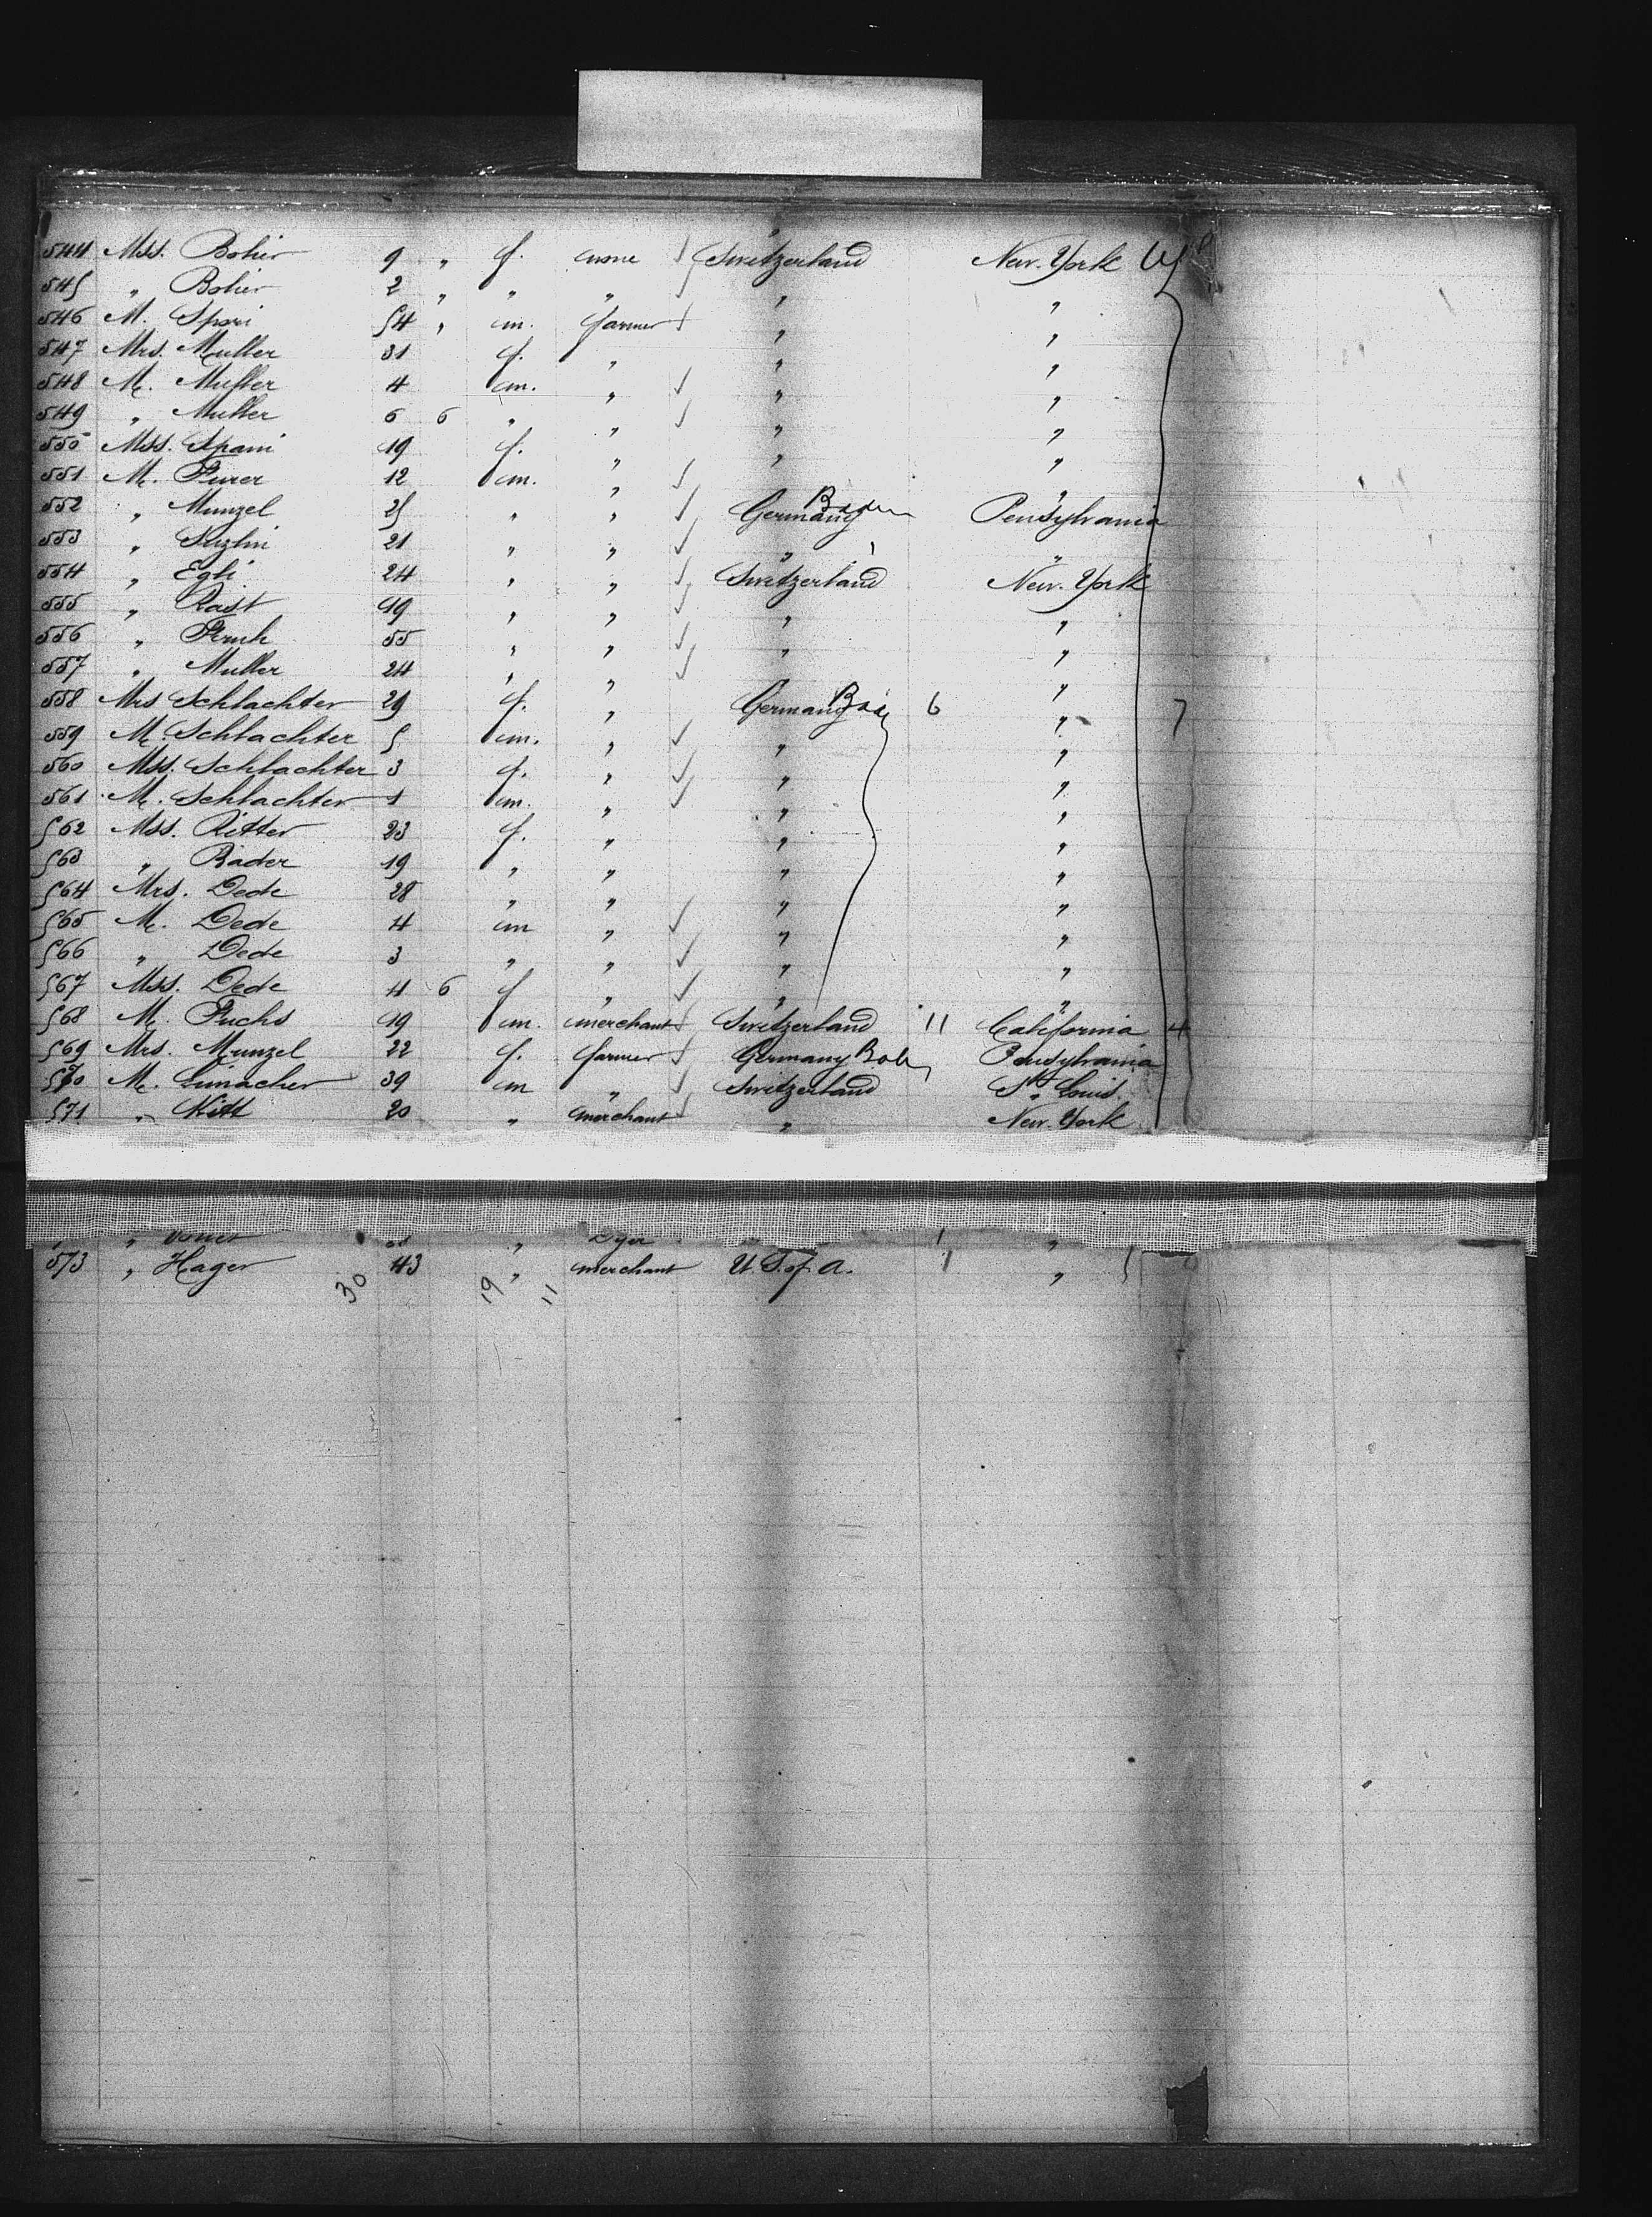 544 Mss. Bohir 9 " f. none Switzerland New. York
545 " Bohir 2 " " " " "
546 M. Spori 54 " m. farmer " "
547 Mrs. Muller 31 f. " " "
548 M. Muller 4 m. " " "
549 " Muller 6 6 " " " "
550 Mss. Spani 19 f. " " "
551 M. Furer 12 m. " "
552 " Munzel 25 " " Germany Baden Pensylvania
553 " 21 " " " "
554 " Egli 24 " " Switzerland New. York
555 " Rast 49 " " " "
556 " 55 " " " "
557 " Muller 24 " " "
558 Mrs Schlachter 29 f. " Germany 6 " 7
559 M. Schlachter 5 m. " " "
560 Mss. Schlachter 3 f. " " "
561 M. Schlachter 1 m. " " "
562 Mss. Ritter 23 f. " " "
563 " Bader 19 " " " "
564 Mrs. Dede 28 " " " "
565 M. Dede 4 m " " "
566 " Dede 3 " " " "
567 Mss. Dede 4 6 f " " "
568 M. Fuchs 49 m. merchant Switzerland 11 California 4
569 Mrs. Munzel 22 f. farmer Germany Pensylvania
570 M. Limacher 39 m " Switzerland St. Louis.
571 " Kitt 20 " merchant " New. York
" " Dyer "
573 " Hager 43 " merchant U. S. of. A. "
30 19 11